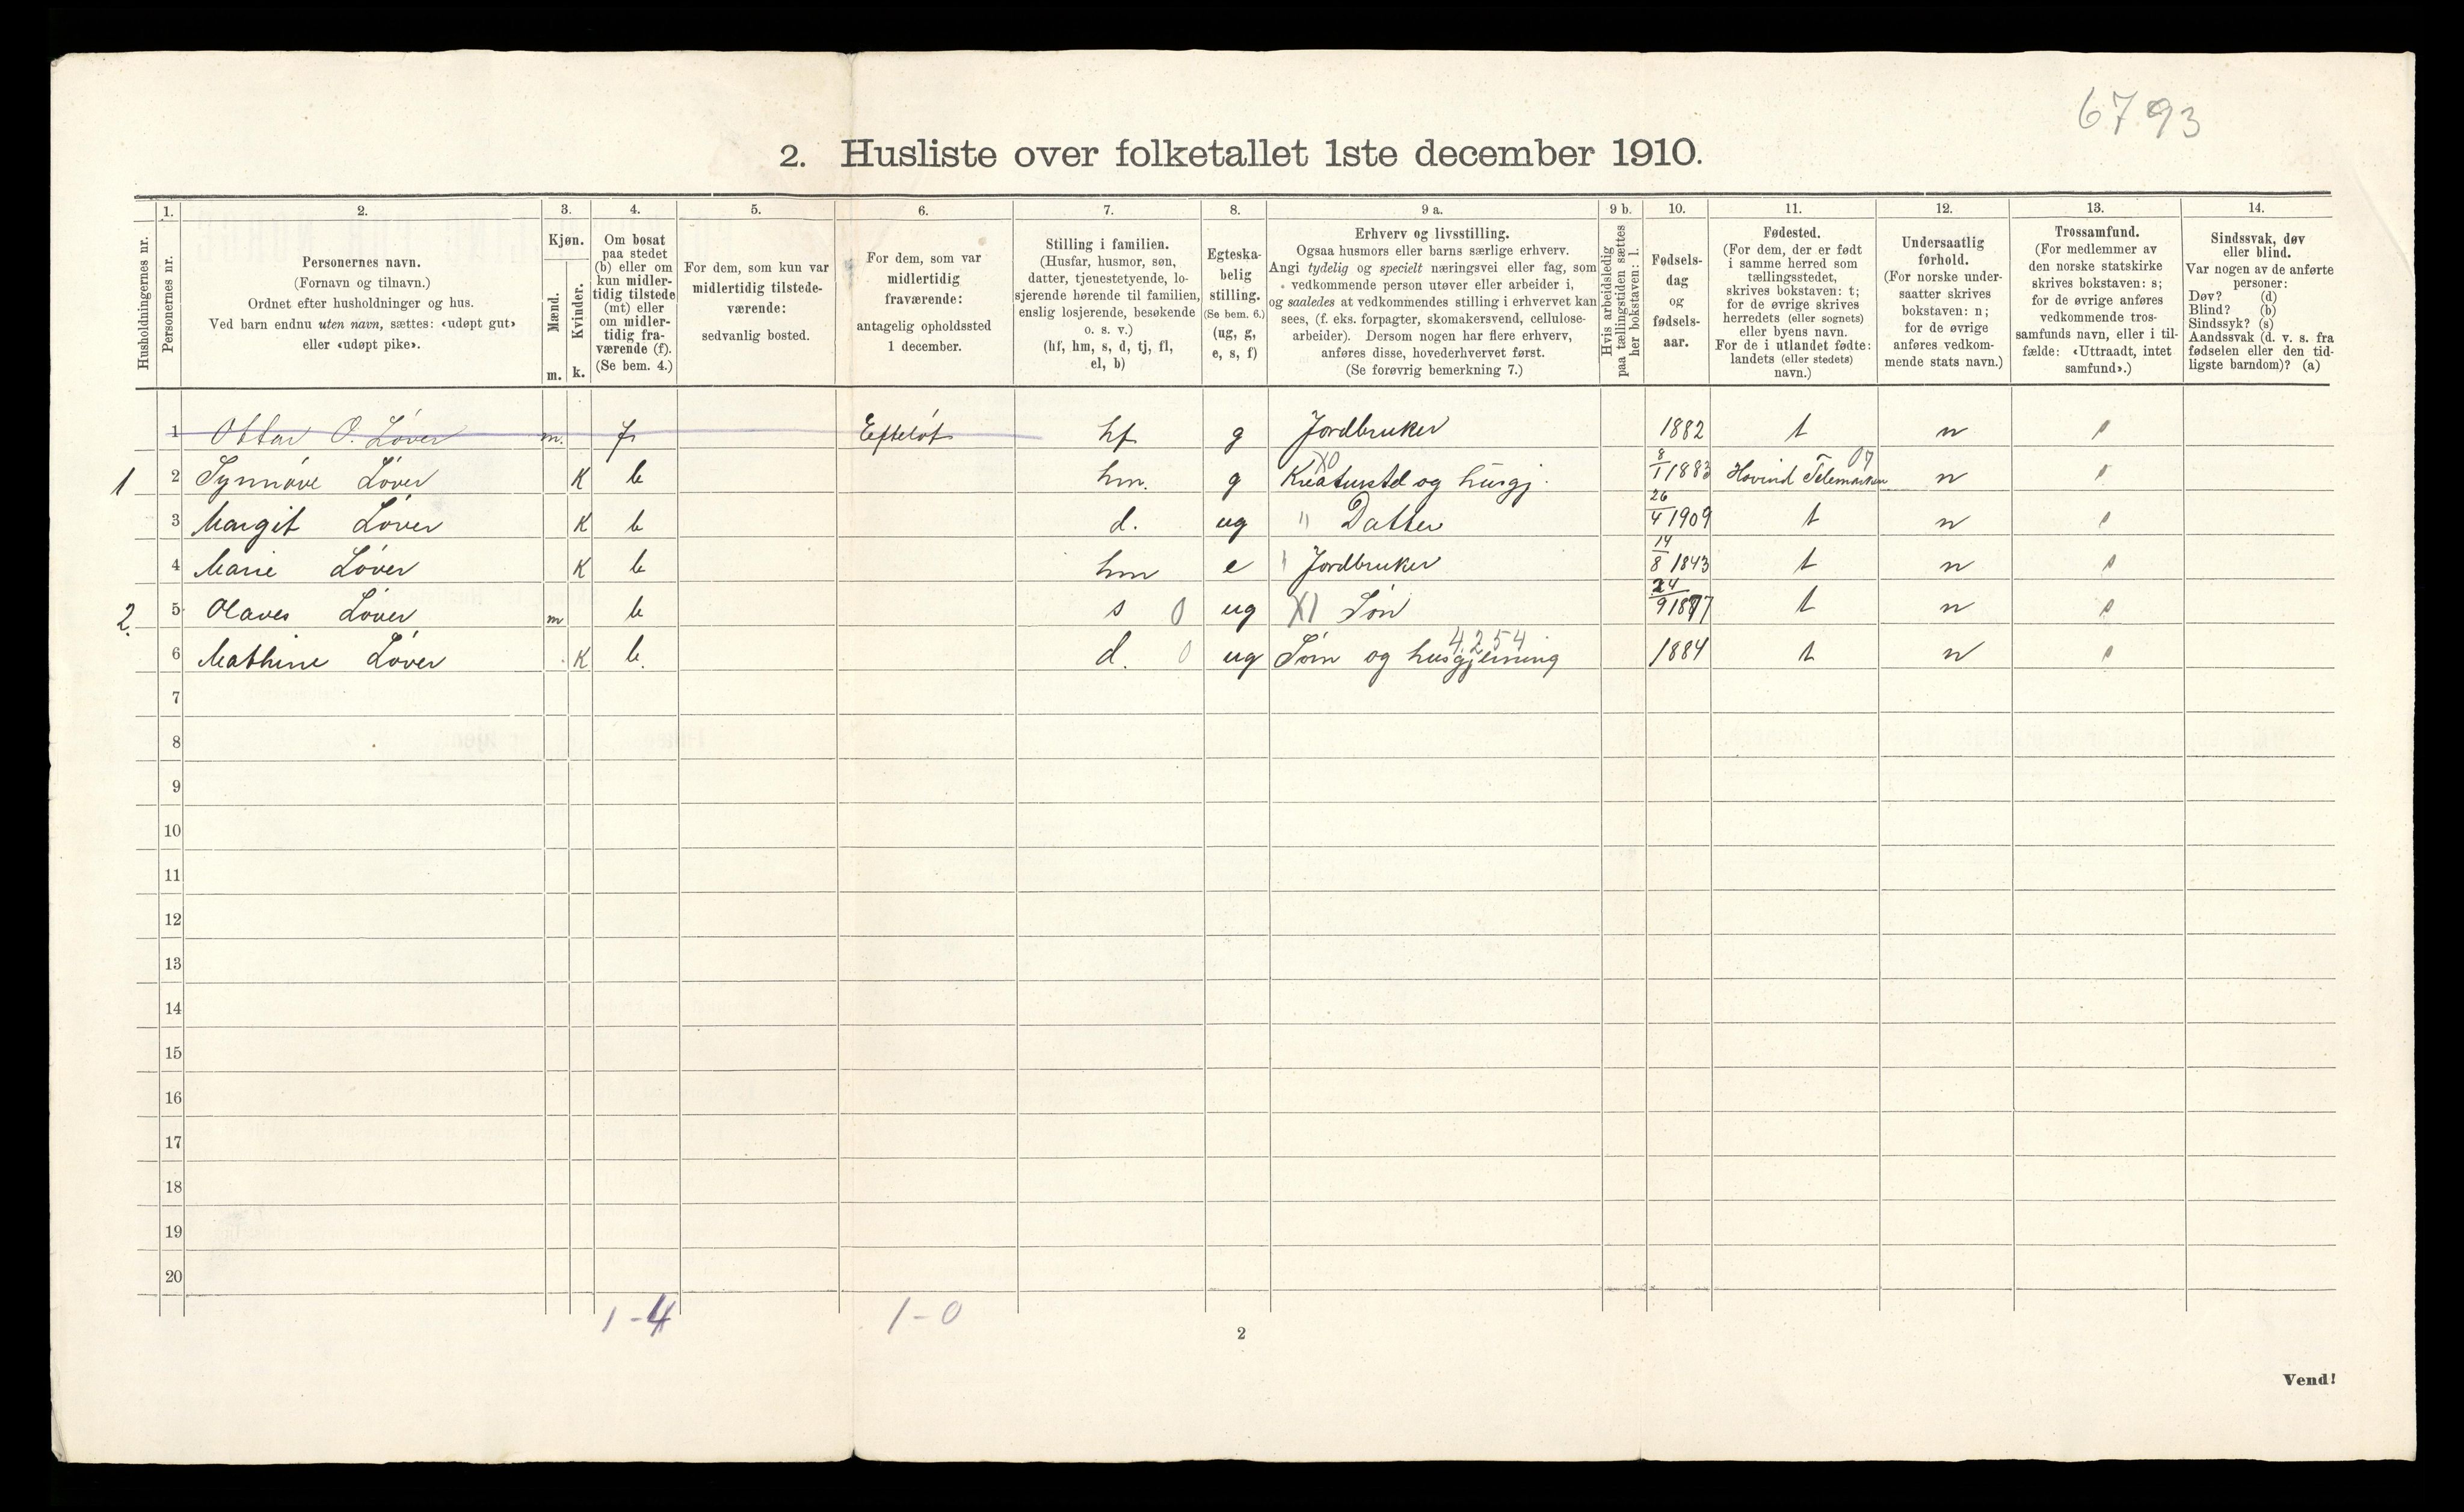 67.93
2. Husliste over folketallet 1ste december 1910.
1. 2. 3. 4. 5. 6. 7. 8. 9 a. 9 b. 10. 11. 12. 13. 14.
Husholdningernes nr.
Personernes nr.
Personernes navn.
(Fornavn og tilnavn.)
Ordnet efter husholdninger og hus.
Ved barn endnu uten navn, sættes: «udøpt gut»
eller «udøpt pike».
Kjøn.
Mænd.
Kvinder.
m. k.
Om bosat
paa stedet
(b) eller om
kun midler-
tidig tilstede
(mt) eller
om midler-
tidig fra-
værende (f).
(Se bem. 4.)
For dem, som kun var
midlertidig tilstede-
værende:
sedvanlig bosted.
For dem, som var
midlertidig
fraværende:
antagelig opholdssted
1 december.
Stilling i familien.
(Husfar, husmor, søn,
datter, tjenestetyende, lo-
sjerende hørende til familien,
enslig losjerende, besøkende
o. s. v.)
(hf, hm, s, d, tj, fl,
el, b)
Egteska-
belig
stilling.
(Se bem. 6.)
(ug, g,
e, s, f)
Erhverv og livsstilling.
Ogsaa husmors eller barns særlige erhverv.
Angi tydelig og specielt næringsvei eller fag, som
vedkommende person utøver eller arbeider i,
og saaledes at vedkommendes stilling i erhvervet kan
sees, (f. eks. forpagter, skomakersvend, cellulose-
arbeider). Dersom nogen har flere erhverv,
anføres disse, hovederhvervet først.
(Se forøvrig bemerkning 7.)
Hvis arbeidsledig
paa tællingstiden sættes
her bokstaven: l.
Fødsels-
dag
og
fødsels-
aar.
Fødested.
(For dem, der er født
i samme herred som
tællingsstedet,
skrives bokstaven: t;
for de øvrige skrives
herredets (eller sognets)
eller byens navn.
For de i utlandet fødte:
landets (eller stedets)
navn.)
Undersaatlig
forhold.
(For norske under-
saatter skrives
bokstaven: n;
for de øvrige
anføres vedkom-
mende stats navn.)
Trossamfund.
(For medlemmer av
den norske statskirke
skrives bokstaven: s;
for de øvrige anføres
vedkommende tros-
samfunds navn, eller i til-
fælde: «Uttraadt, intet
samfund».)
Sindssvak, døv
eller blind.
Var nogen av de anførte
personer:
Døv? (d)
Blind? (b)
Sindssyk? (s)
Aandssvak (d. v. s. fra
fødselen eller den tid-
ligste barndom)? (a)
1 Ottar O. Løver m. f Efteløt hf g Jordbruker 1882 t n s
X0 07
1 2 Synnøve Løver K b hm. g Kreaturstel og husgj. 8/1 1883 Hovind Telemarken n s
3 Margit Løver K b d. ug " Datter 26/4 1909 t n s
4 Marie Løver K b hm e Jordbruker 14/8 1843 t n s
2. 5 Olaves Løver m b s 0 ug X1 Søn 24/9 1877 t n s
4254
6 Mathine Løver K b. d. 0 ug Søm og husgjerning 1884 t n s
7
8
9
10
11
12
13
14
15
16
17
18
19
20
1-4 1-0
2
Vend!